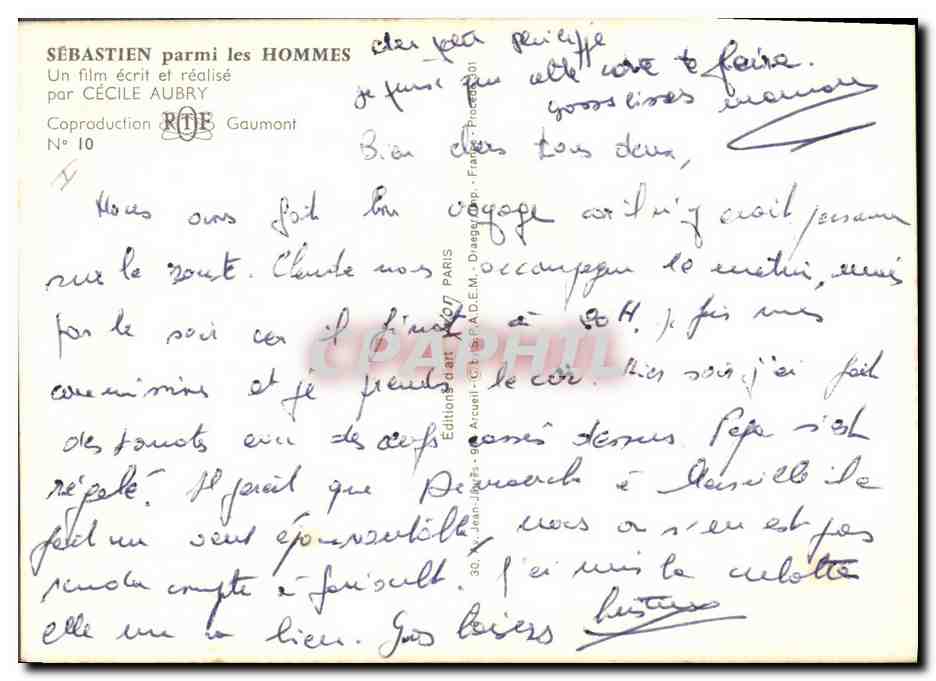 SÉBASTIEN parmi les HOMMES
Un film écrit et réalisé
par CÉCILE AUBRY
Coproduction RTF Gaumont
N° 10
cher petit philippe
je pense que cette carte te plaira.
gross bises maman
Bien chers tous deux,
Nous avons fait bon voyage car il n'y avait personne
sur la route. Claude nous accompagne le matin, mais
pas le soir car il finit à 20 H. je fais mes
commissions et je prends le car. Hier soir j'ai fait
des tomates avec des oeufs cassés dessus. Papa s'est
régalé. Il paraît que Dimanche à Marseille il a
fait un vent épouvantable, nous on s'en est pas
rendu compte à . J'ai mis la culotte
elle me va bien. Gros baisers
Editions d'art YVON PARIS
30, Av. Jean-Jaurès - 94 Arcueil - C. by S.P.A.D.E.M. - Draeger Imp. - France - Procédé 301
CPAPHIL